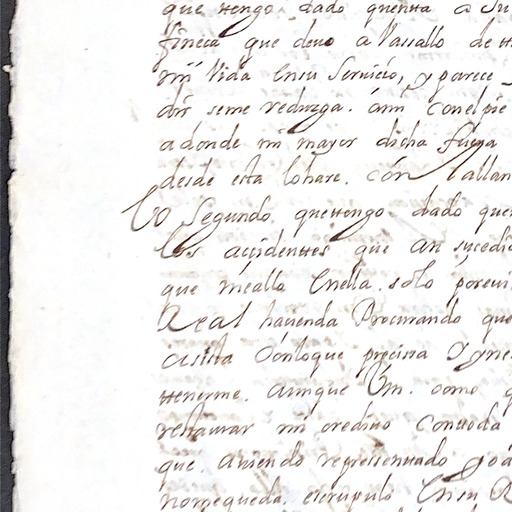 que ttengo dado quentta a Su
fineca que deuo a Vassallo de tt
mi Vida Ensu Seruicio, y parece
dir seme reduzga. ami conelpie
adonde mi mayor dicha fuera
desde esta lo hare. con tallan
Lo Segundo quettengo dado quen
los accidenttes que an sucedid
que mealla Enella. solo poreui
Real hauenda Procurando que
asista conloque precisa Yyne
ttenerme. aunque Vm. como q
restaurar mi credito conttoda
que. auiendo repressenttado Yo a
nomequeda escrupulo Ensu R